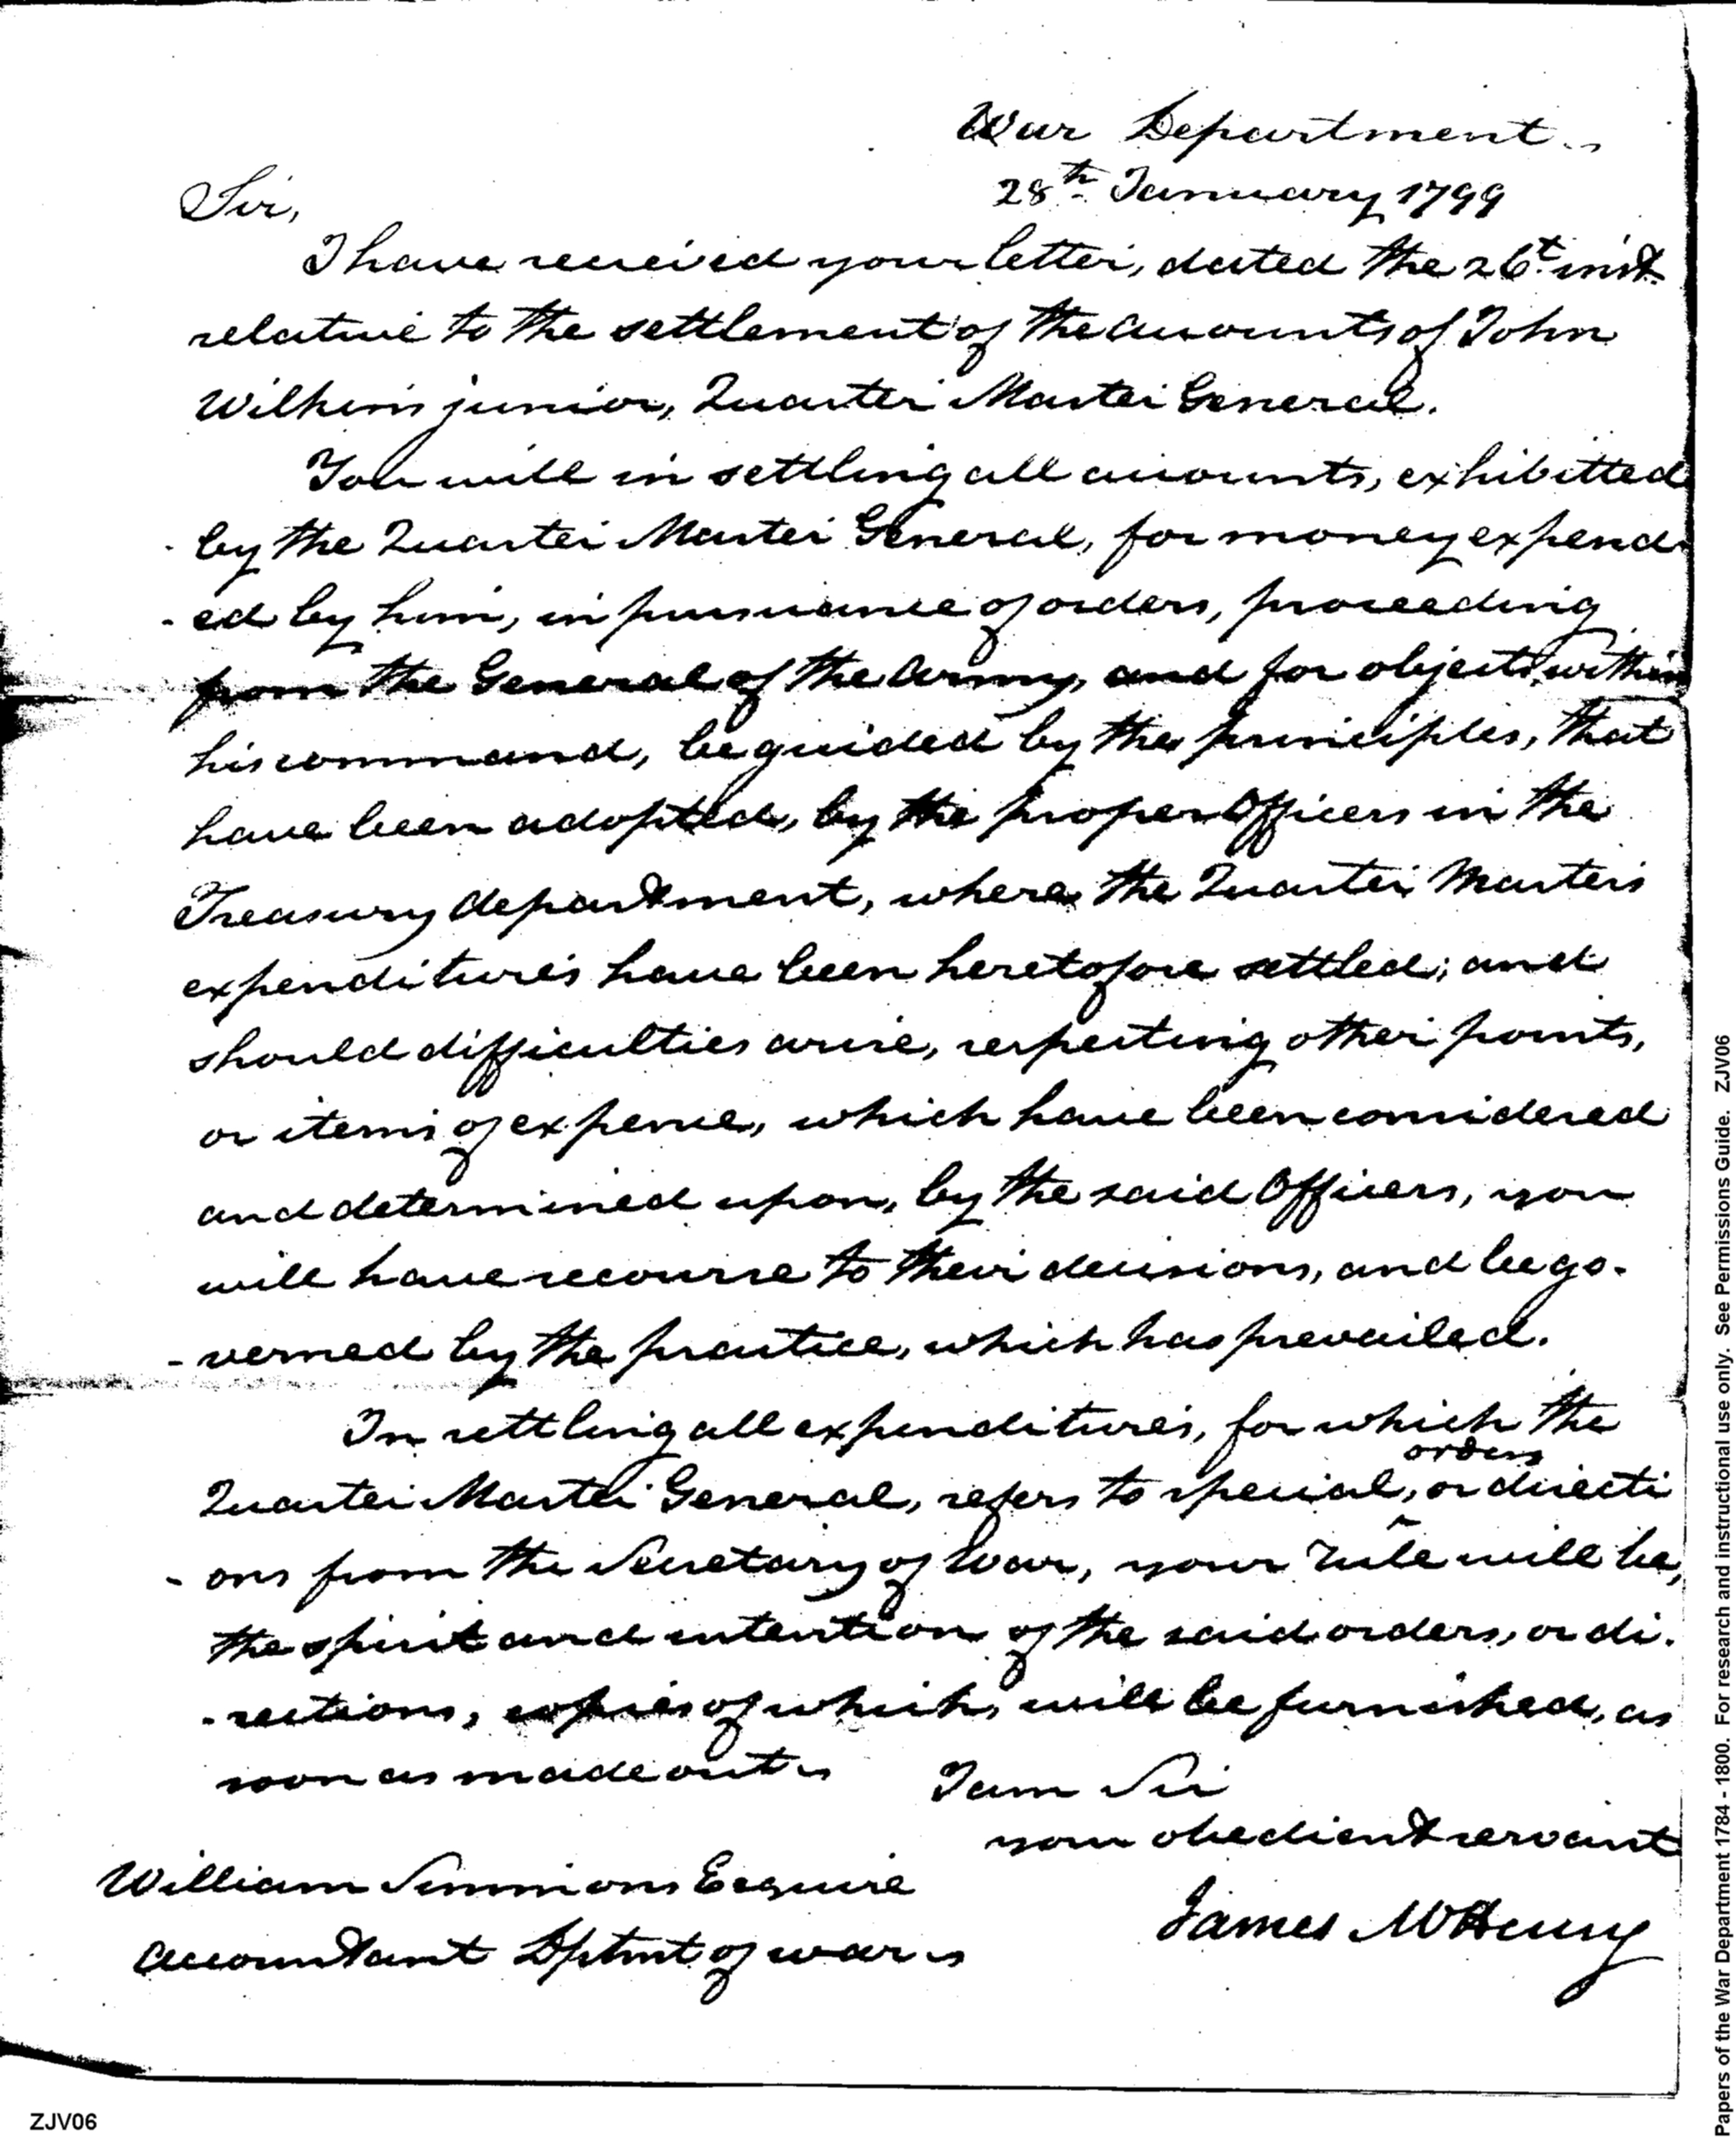 War Department
28th January 1799
Sir,
I have received your letter, dated the 26t inst
relative to the settlement of the accounts of John
Wilkins junior, Quarter Master General.
You will in settling all accounts, exhibitted
by the Quarter Master General, for money expend-
-ed by him, in pursuance of orders, proceeding
from the General of the Army, and for objects within
his command, be guided by the principles, that
have been adopted, by the proper Officers in the
Treasury department, where the Quarter Masters
expenditures have been heretofore settled; and
should difficulties arise, respecting other points,
or items of expence, which have been considered
and determined upon, by the said Officers, you
will have recourse to their decisions, and be go-
-verned by the practice, which has prevailed.
In settling all expenditures, for which the
orders
Quarter Master General, refers to special, or directi
-ons from the Secretary of War, your rule will be,
the spirit and intention of the said orders, or di-
-rections, copies of which, will be furnished, as
soon as made out
I am Sir
your obedient servant
James McHenry
William Simmons Esquire
Accountant Dptmt of war
ZJV06
Papers of the War Department 1784 - 1800. For research and instructional use only. See Permissions Guide. ZJV06